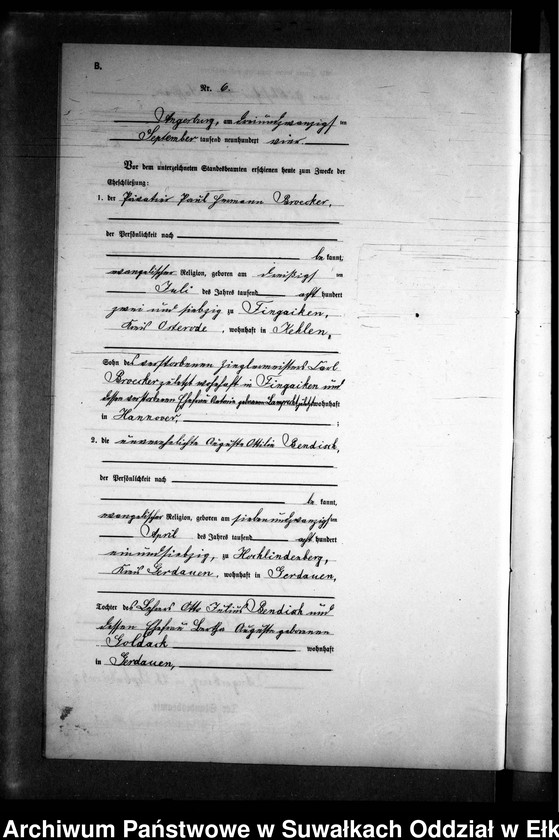 B.
Nr. 6.
Angerburg, am dreiundzwanzigsten
September tausend neunhundert vier
Vor dem unterzeichneten Standesbeamten erschienen heute zum Zwecke der
Eheschließung:
1. der Privatier Paul Hermann Broecker,
der Persönlichkeit nach
be kannt,
evangelischer Religion, geboren am dreißigsten
Juli des Jahres tausend acht hundert
zwei und siebzig zu Fingaiken,
Kreis Osterode, wohnhaft in Kehlen,
Sohn des verstorbenen Zieglermeisters Carl
Broecker zuletzt wohnhaft in Fingaiken und
dessen verstorbenen Ehefrau geborenen zuletzt wohnhaft
in Hannover, ;
2. die unverehelichte Auguste Ottilie Bendisch,
der Persönlichkeit nach
be kannt,
evangelischer Religion, geboren am siebenundzwanzigsten
April des Jahres tausend acht hundert
einundsiebzig, zu Hochlindenberg,
Kreis Gerdauen, wohnhaft in Gerdauen,
Tochter des Lehrers Otto Julius Bendisch und
dessen Ehefrau Bertha Auguste geborenen
Goldack wohnhaft
in Gerdauen,
Archiwum Państwowe w Suwałkach Oddział w Ełk